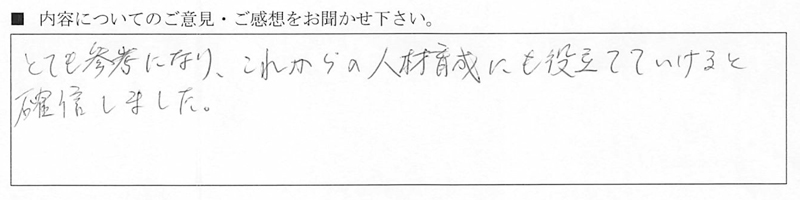 ■ 内容についてのご意見・ご感想をお聞かせ下さい。
とても参考になり、これからの人材育成にも役立てていけると
確信しました。